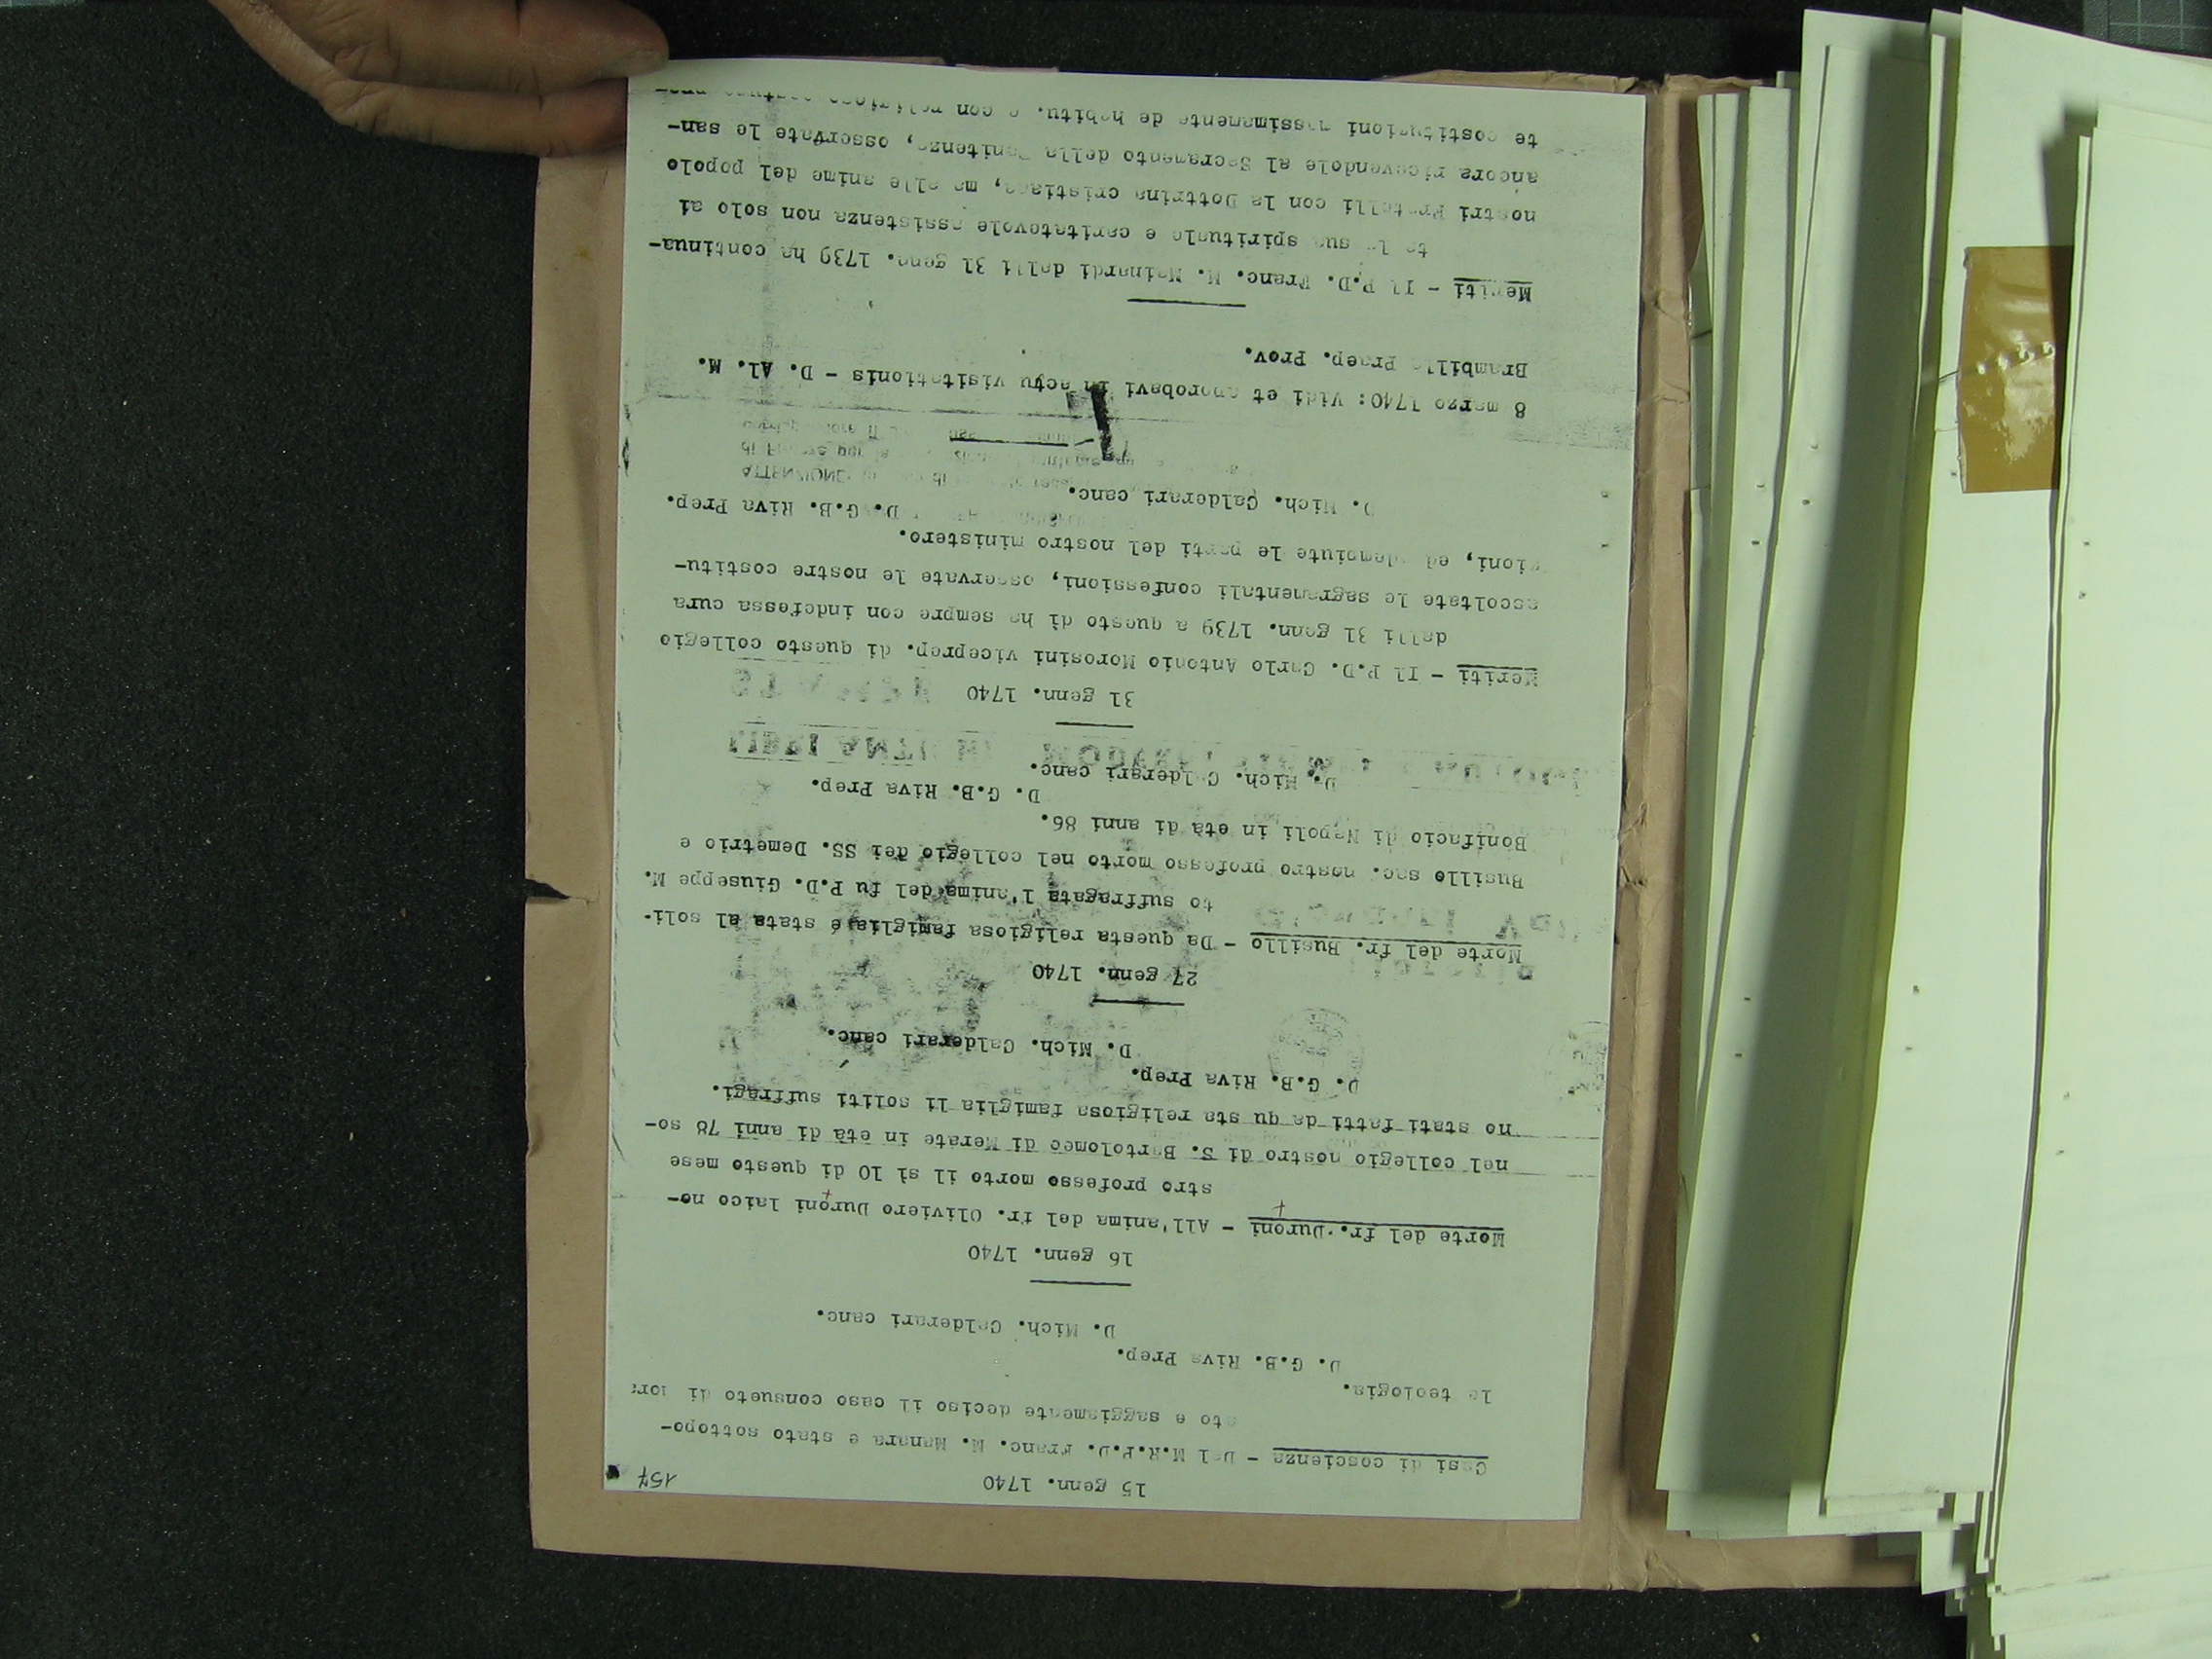 157
15 genn. 1740
Casi di coscienza - Dal M.R.P.D. Franc. M. Manara e stato sottopo-
sto e saggiamente deciso il caso consueto di
le teologia.
D. G.B. Riva Prep.
D. Mich. Calderari canc.
16 genn. 1740
Morte del fr. Duroni - All'anima del fr. Oliviero Duroni laico no-
stro professo morto il sì 10 di questo mese
nel collegio nostro di S. Bartolomeo di Merate in età di anni 78 so-
no stati fatti da qu sta religiosa famiglia li soliti suffragi.
D. G.B. Riva Prep.
D. Mich. Calderari canc.
27 genn. 1740
Morte del fr. Busillo - Da questa religiosa famiglia é stata al soli-
to suffragata l'anima del fu P.D. Giuseppe M.
Busillo sac. nostro professo morto nel collegio dei SS. Demetrio e
Bonifacio di Napoli in età di anni 86.
D. G.B. Riva Prep.
D. Mich. Calderari canc.
31 genn. 1740
Meriti - Il P.D. Carlo Antonio Morosini viceprep. di questo collegio
dalli 31 genn. 1739 a questo di ha sempre con indefessa cura
ascoltate le sagramentali confessioni, osservate le nostre costitu-
zioni, ed adempiute le parti del nostro ministero.
D. G.B. Riva Prep.
D. Mich. Calderari canc.
8 marzo 1740: Vidi et approbavi in actu visitationis - D. Al. M.
Brambilla Praep. Prov.
Meriti - Il P.D. Franc. M. Mainardi dalli 31 genn. 1739 ha continua-
to la sua spirituale e caritatevole assistenza non solo ai
nostri Fratelli con la Dottrina cristiana, ma alle anime del popolo
ancora ricevendole al Sacramento della Penitenza, osservate le san-
te costituzioni massimamente de habitu. e con religiosa